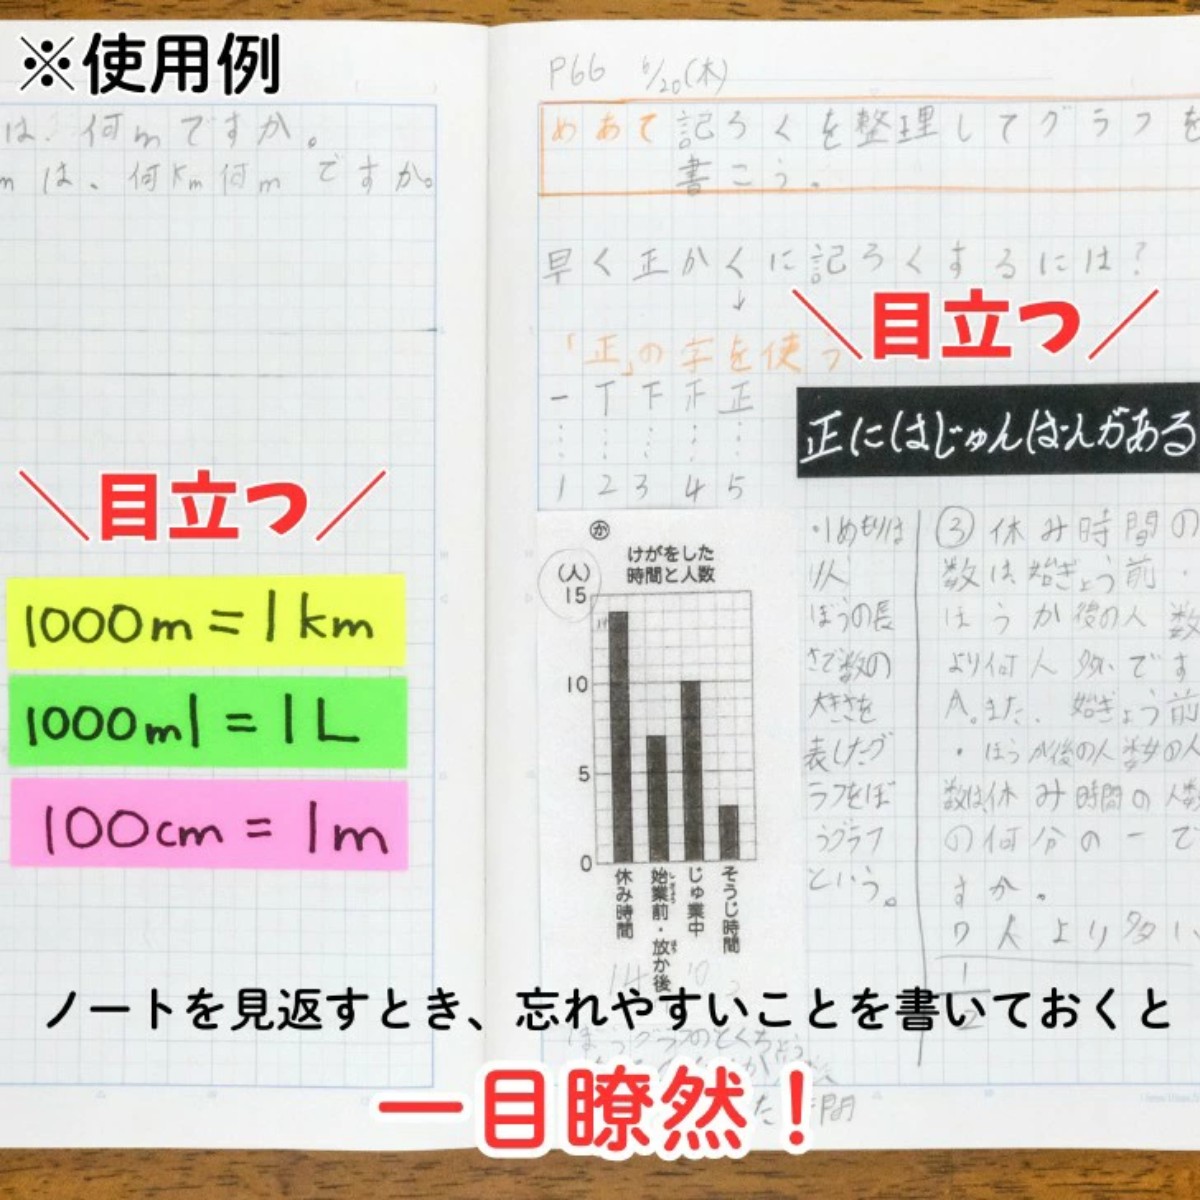 ※使用例
は、何mですか。
mは、何km何mですか。
目立つ
1000m=1km
1000ml=1L
100cm=1m
P66 6/20(木)
めあて 記ろくを整理してグラフを
書こう。
早く正かくに記ろくするには？
↓
「正」の字を使う
目立つ
一 丁 下 正 正
1 2 3 4 5
正にはじゅんばんがある
か
けがをした
時間と人数
(人)
15
10
5
0
休み時間
始業前・放か後
じゅ業中
そうじ時間
14 10
・1めもりは
1人
ぼうの長
さで数の
大きさを
表したグ
ラフをぼ
うグラフ
という。
③休み時間の
数は始ぎょう前・
ほうか後の人数
より何人多いです
か。また、始ぎょう前
・ほうか後の人数の人
数は、休み時間の人数
の何分の一で
すか。
7人より多い
1
2
ノートを見返すとき、忘れやすいことを書いておくと
ぼうグラフのとくちょう
一目瞭然！